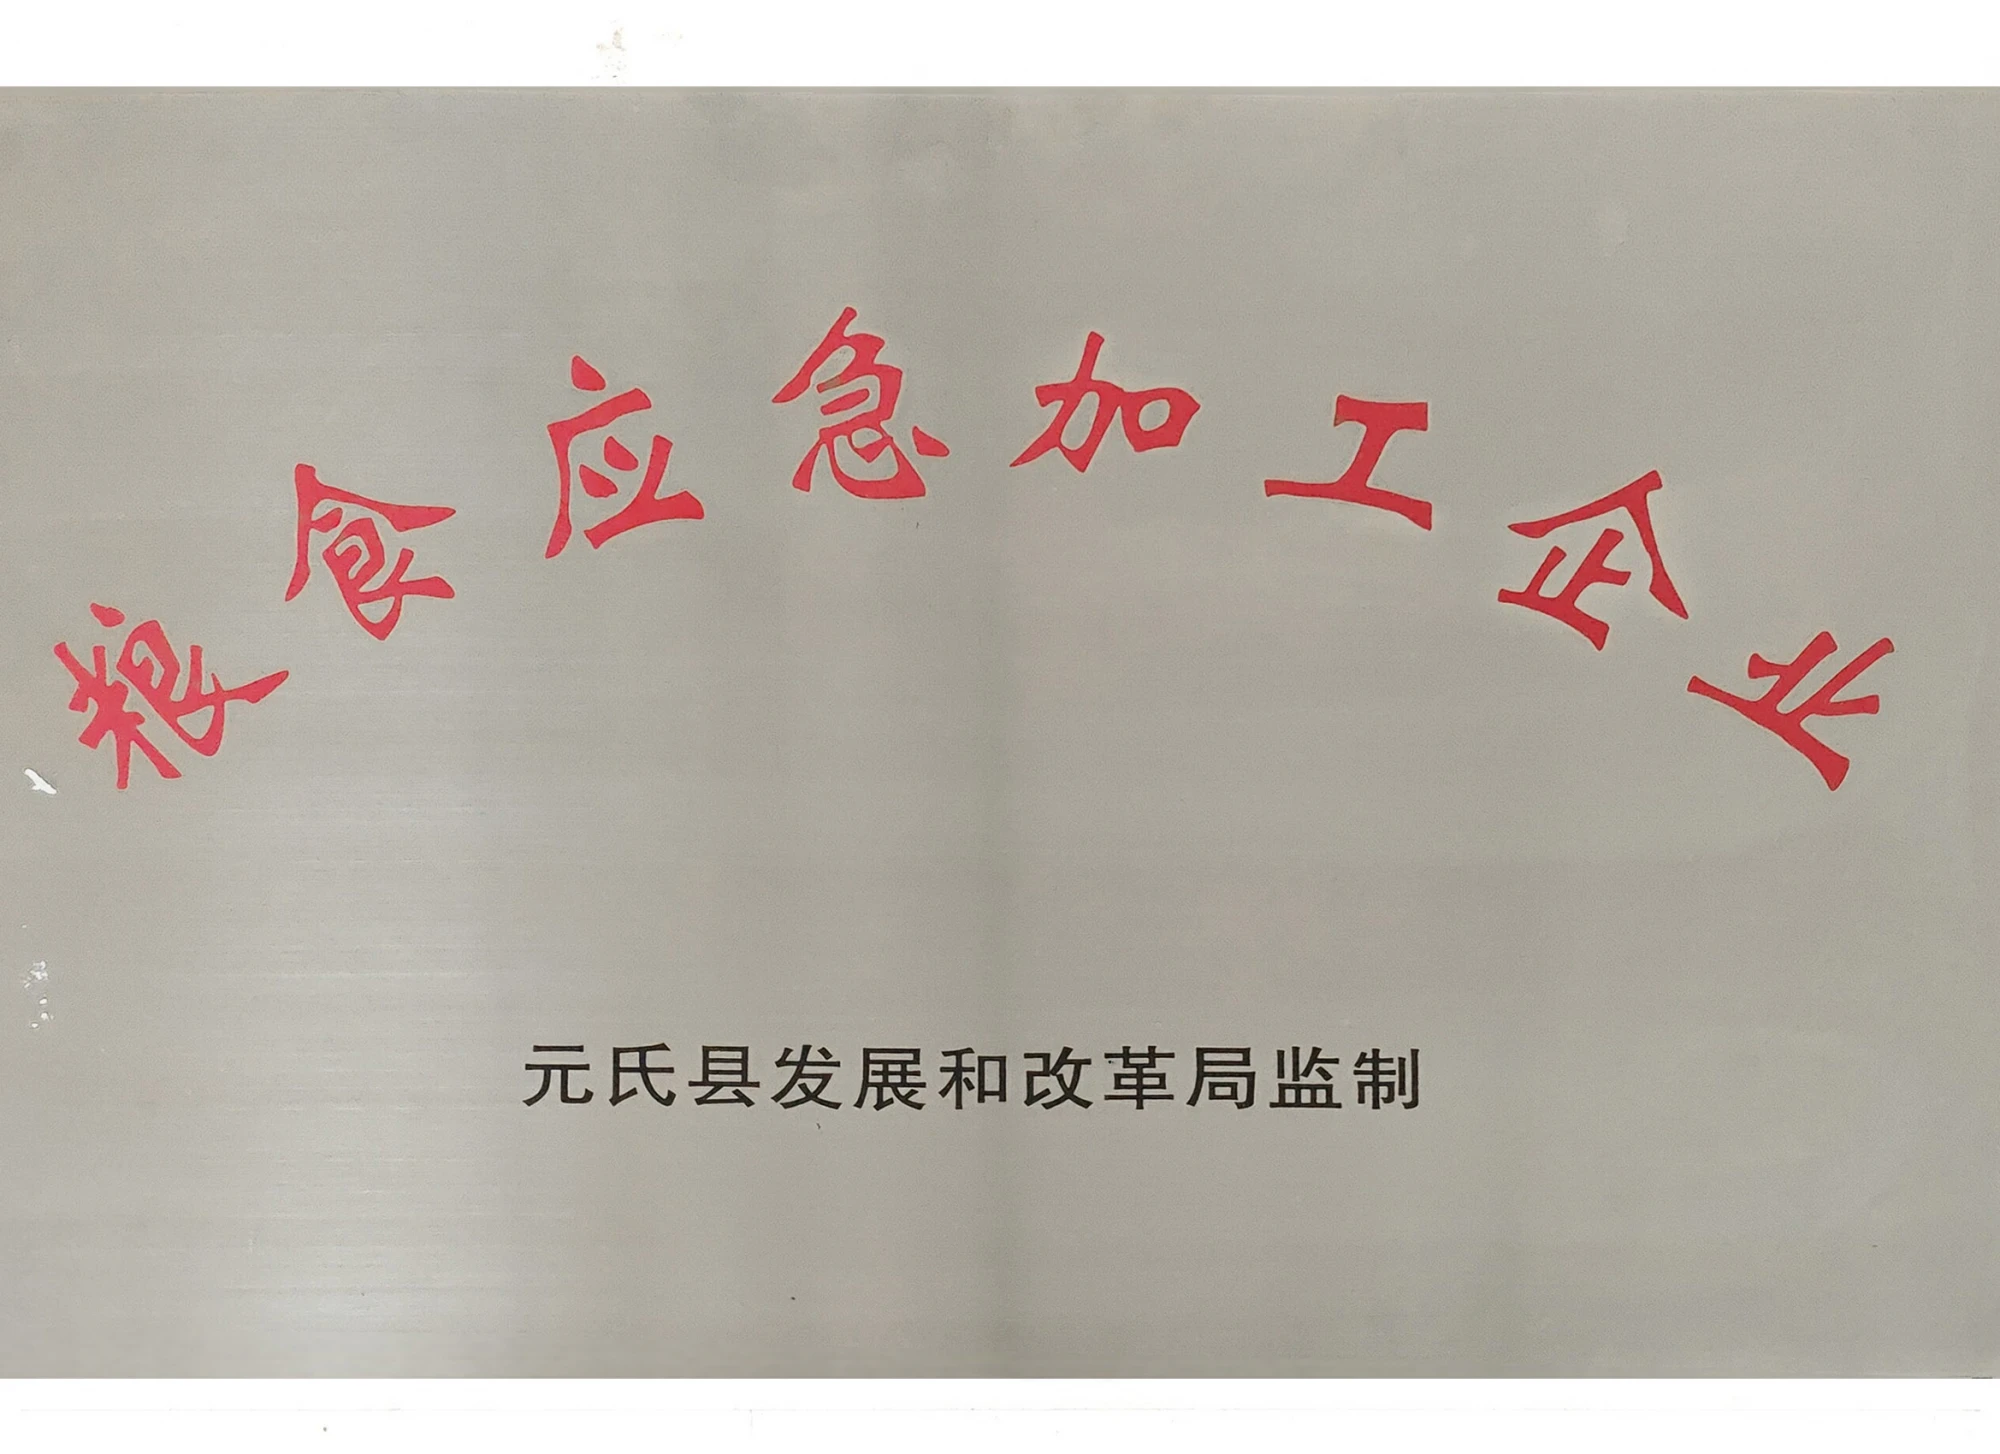 粮食应急加工企业
元氏县发展和改革局监制